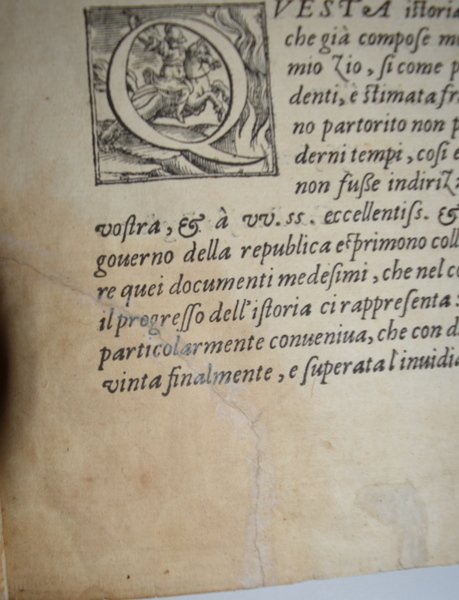 QVESTA istoria
che già compose m
mio Zio, si come p
denti, è stimata fr
no partorito non p
derni tempi, così e
non fuße indiriz
vostra, & à vv. ss. eccellentiss. &
gouerno della republica e primono coll
re quei documenti medesimi, che nel co
il progresso dell'istoria ci rappresenta
particolarmente conueniua, che con d
vinta finalmente, e superata l'inuidia